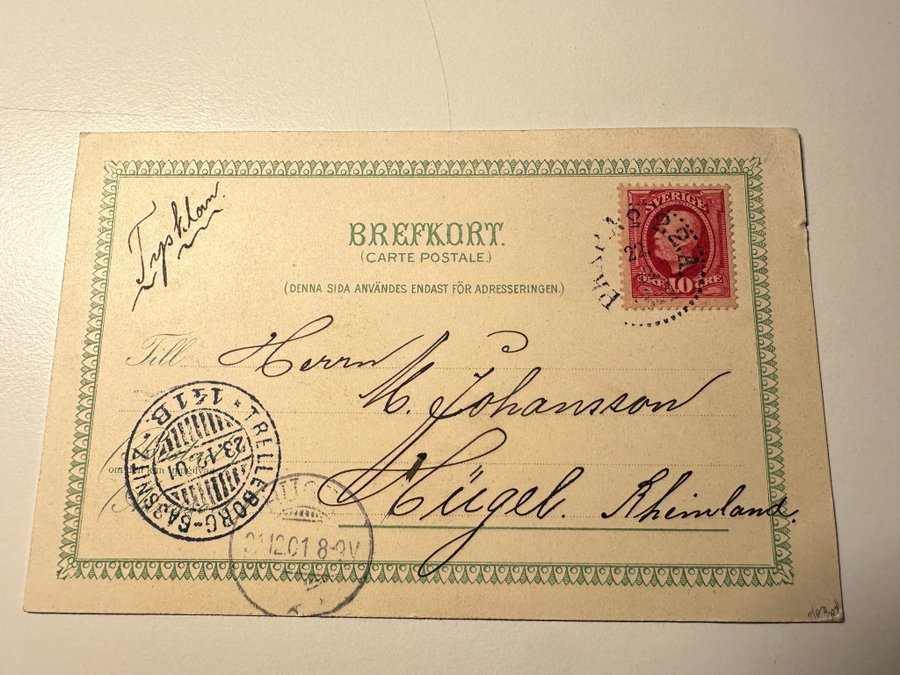 Tyskland.
BREFKORT.
(CARTE POSTALE.)
(DENNA SIDA ANVÄNDES ENDAST FÖR ADRESSERINGEN.)
SVERIGE
10 ÖRE
22
Till Herrn
M. Johansson
Hügel. Rheinland.
TRELLEBORG-SASSNITZ
141 B.
23.12.01
12.01 8-9V